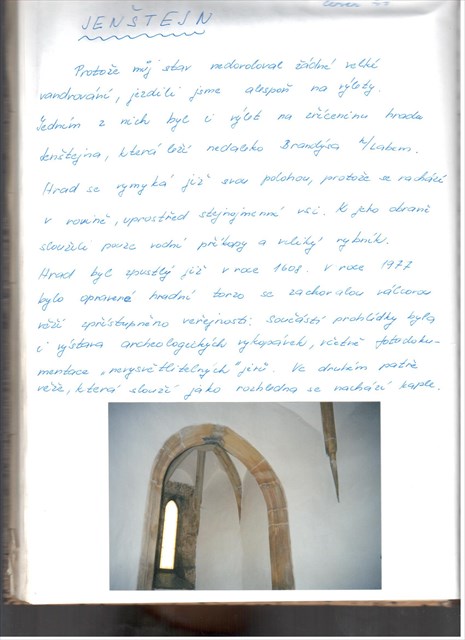 červen
JENŠTEJN
Protože můj stav nedovoloval žádné velké
vandrování, jezdili jsme alespoň na výlety.
Jedním z nich byl i výlet na zříceninu hradu
Jenštejna, která leží nedaleko Brandýsa n/Labem.
Hrad se vymyká již svou polohou, protože se nachází
v rovině, uprostřed stejnojmenné vsi. K jeho obraně
sloužili pouze vodní příkopy a veliký rybník.
Hrad byl zpustlý již v roce 1608. V roce 1977
bylo opravené hradní torzo se zachovalou válcovou
věží zpřístupněno veřejnosti. Součástí prohlídky byla
i výstava archeologických vykopávek, včetně fotodoku-
mentace „nevysvětlitelných" jevů. Ve druhém patře
věže, která slouží jako rozhledna se nachází kaple.